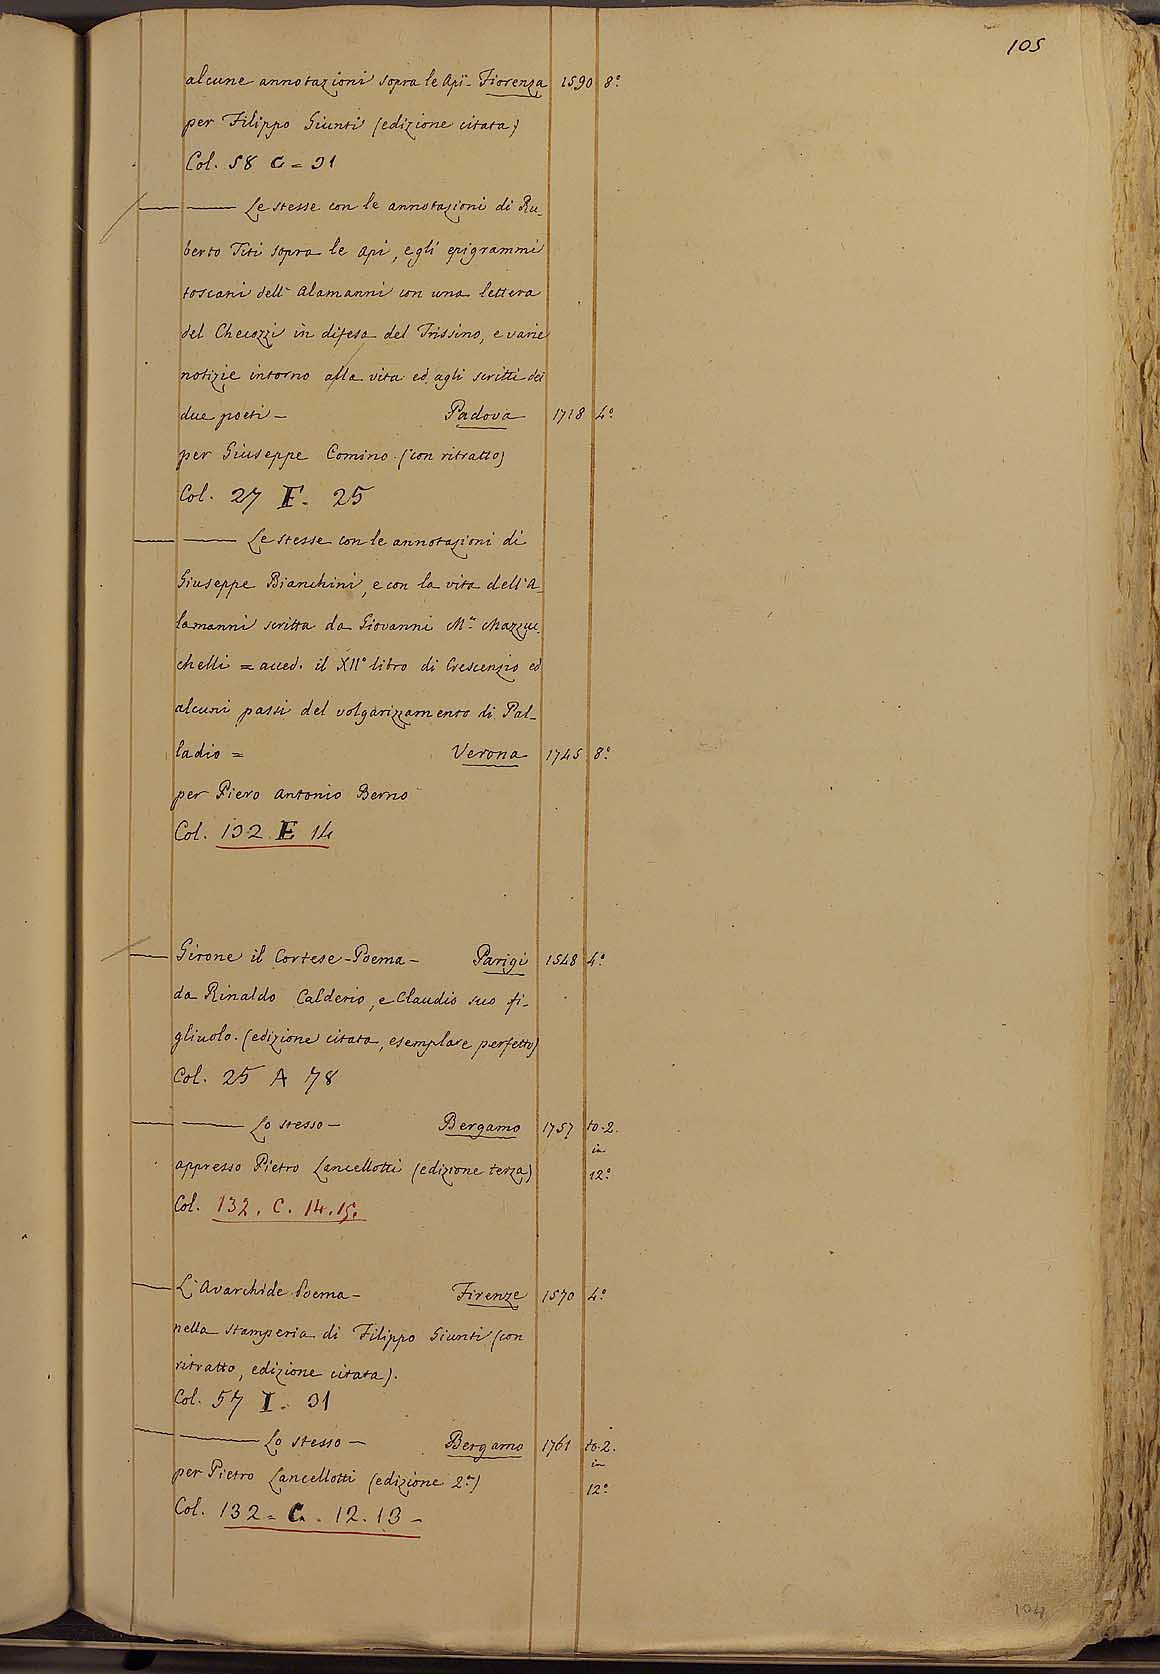 105
alcune annotazioni sopra le Api - Fiorenza 1590 8.°
per Filippo Giunti (edizione citata)
Col. 58 C = 31
—— Le stesse con le annotazioni di Ru-
berto Titi sopra le Api, e gli epigrammi
toscani dell'Alamanni con una lettera
del Checozzi in difesa del Trissino, e varie
notizie intorno alla vita ed agli scritti dei
due poeti — Padova 1718 4.°
per Giuseppe Comino (con ritratto)
Col. 27 F. 25
—— Le stesse con le annotazioni di
Giuseppe Bianchini, e con la vita dell'A-
lamanni scritta da Giovanni M.ª Mazzuc-
chelli = acced. il XII° libro di Crescenzio ed
alcuni passi del volgarizzamento di Pal-
ladio = Verona 1745 8.°
per Piero Antonio Berno
Col. 132 E 14
Girone il Cortese - Poema - Parigi 1548 4.°
da Rinaldo Calderio, e Claudio suo fi-
gliuolo. (edizione citata, esemplare perfetto)
Col. 25 A 78
—— Lo stesso — Bergamo 1757 to. 2.
in
appresso Pietro Lancellotti (edizione terza) 12.°
Col. 132. C. 14. 15.
L'Avarchide Poema — Firenze 1570 4.°
nella Stamperia di Filippo Giunti (con
ritratto, edizione citata).
Col. 57 I. 31
—— Lo stesso — Bergamo 1761 to. 2.
in
per Pietro Lancellotti (edizione 2.ª) 12.°
Col. 132 = C. 12. 13 —
104